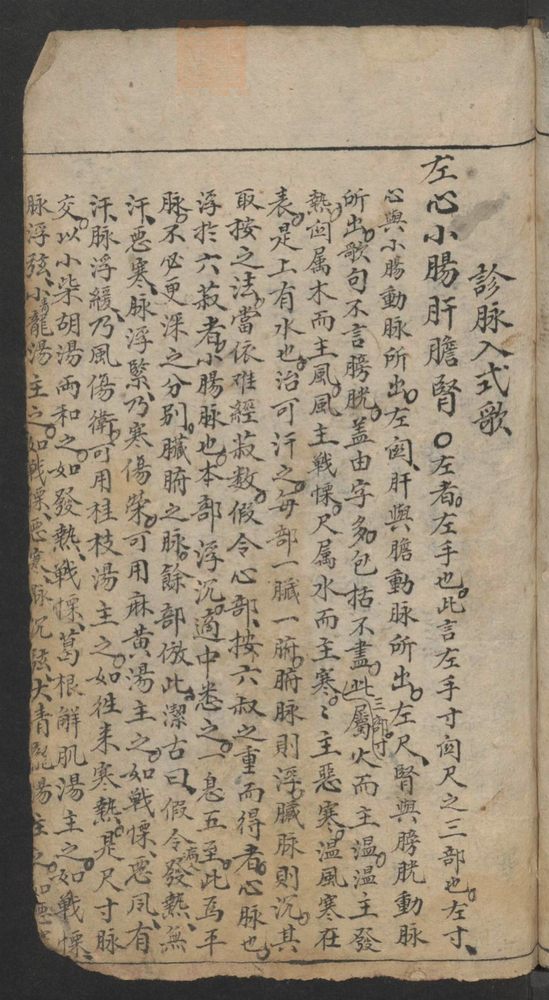 診脉入式歌
左心小腸肝膽腎○左者左手也此言左手寸関尺之三部也左寸
心與小腸動脉所出左関肝與膽動脉所出左尺腎與膀胱動脉
所出歌句不言膀胱盖由字多包括不盡此三部寸屬火而主温温主發
熱関属木而主風風主戦慄尺属水而主寒〻主惡寒温風寒在
表是上有水也治可汗之每部一臟一腑腑脉則浮臟脉則沉其
取按之法當依难經菽数假令心部按六菽之重而得者心脉也
浮於六菽者小腸脉也本部浮沉適中悉之一息五至此為平
脉不必更深之分别臟腑之脉餘部倣此潔古曰假令病發熱無
汗惡寒脉浮緊乃寒傷荣可用麻黄湯主之如戦慄惡风有
汗脉浮緩乃風傷衛可用桂枝湯主之如徃来寒熱是尺寸脉
交以小柴胡湯两和之如發熱戦慄葛根解肌湯主之如戦慄
脉浮弦小青龍湯主之如戦慄惡寒脉沉弦大青龍湯主之如惡寒